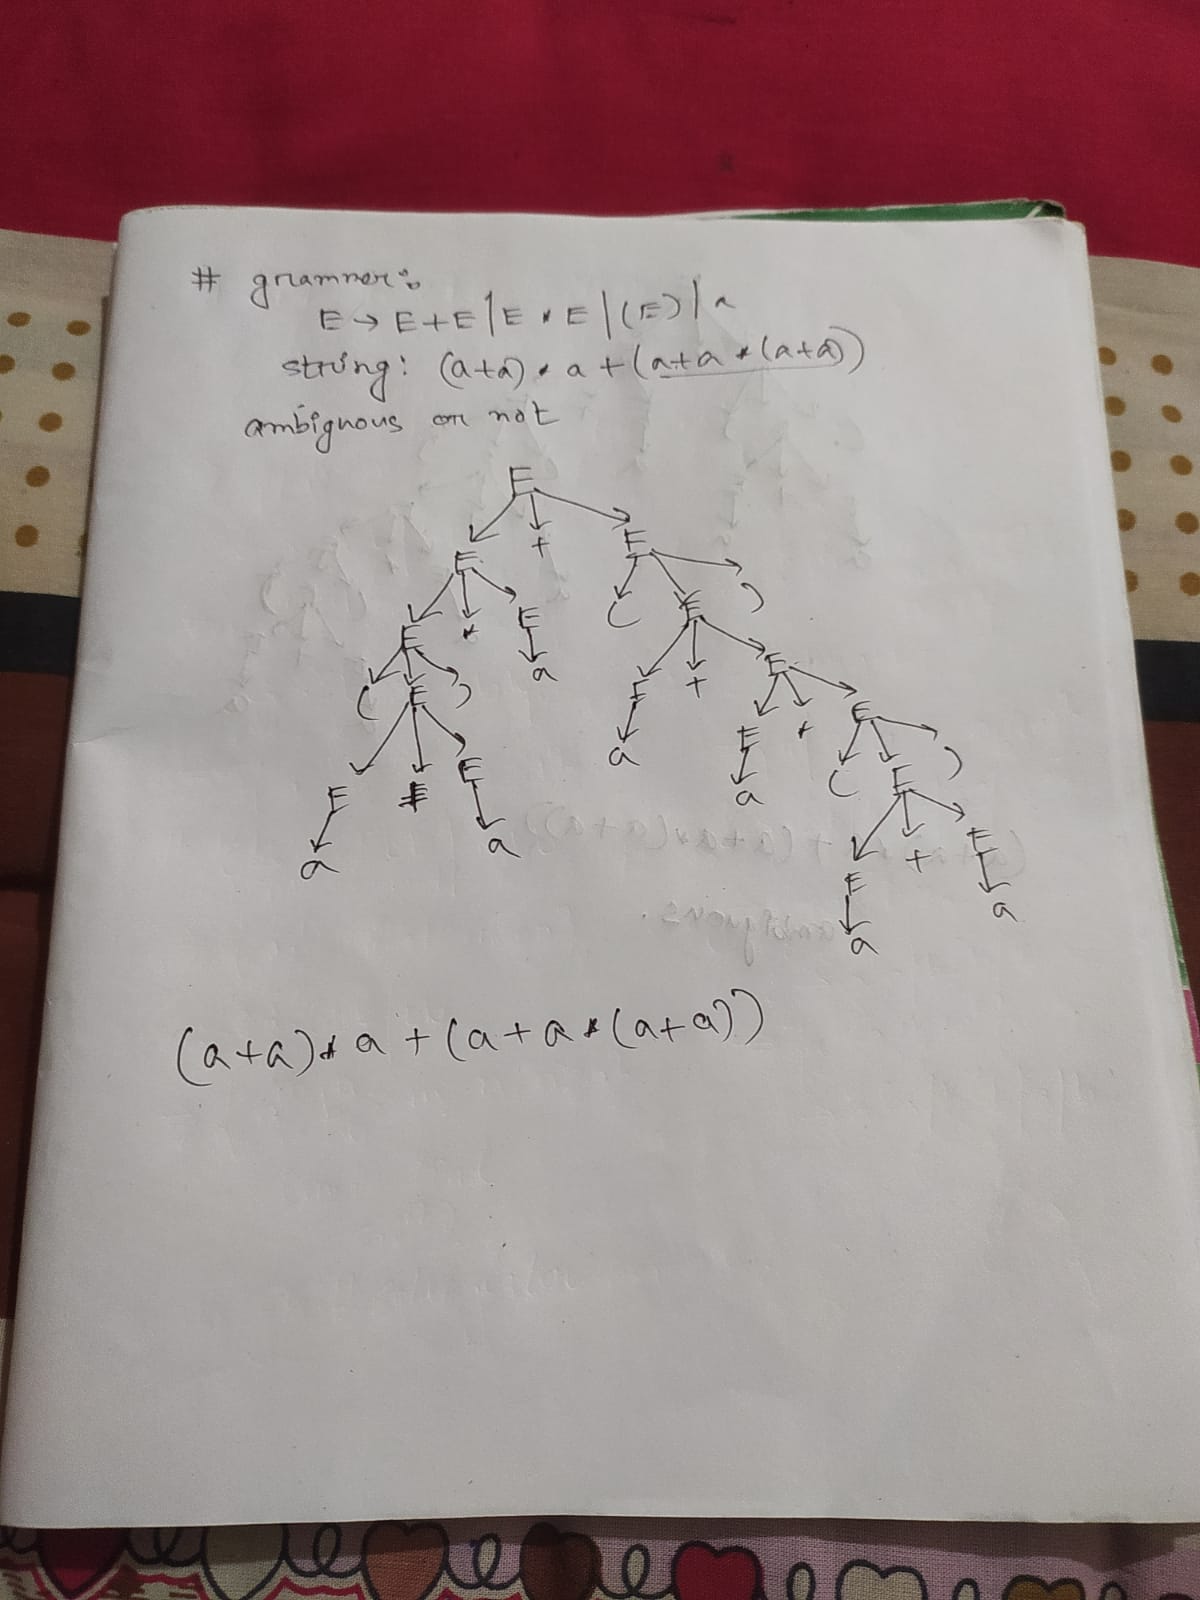 # grammer:
E → E+E | E * E | (E) | a
string: (a+a) * a + (a+a * (a+a))
ambiguous or not
E
E + E
E * E ( E )
( E ) a E + E
E + E a E * E
a a a ( E )
E + E
a a
(a+a) * a + (a+a * (a+a))